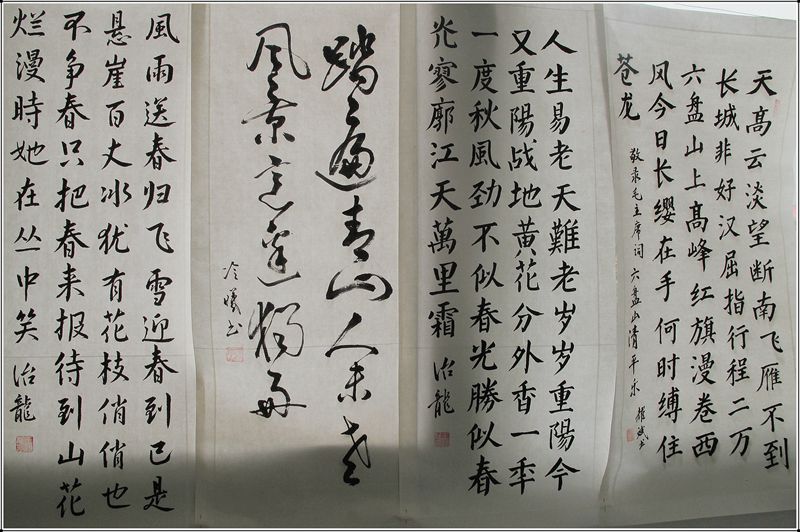 天髙云淡望断南飞雁不到
长城非好汉屈指行程二万
六盘山上髙峰红旗漫卷西
风今日长缨在手何时缚住
苍龙
敬录毛主席词六盘山清平乐
人生易老天難老岁岁重陽今
又重陽战地黄花分外香一年
一度秋風劲不似春光勝似春
光寥廓江天萬里霜 治龍
踏遍青山人未老
风景这邊獨好
冷曦书
風雨送春归飞雪迎春到已是
悬崖百丈冰犹有花枝俏俏也
不争春只把春来报待到山花
烂漫時她在丛中笑 治龍